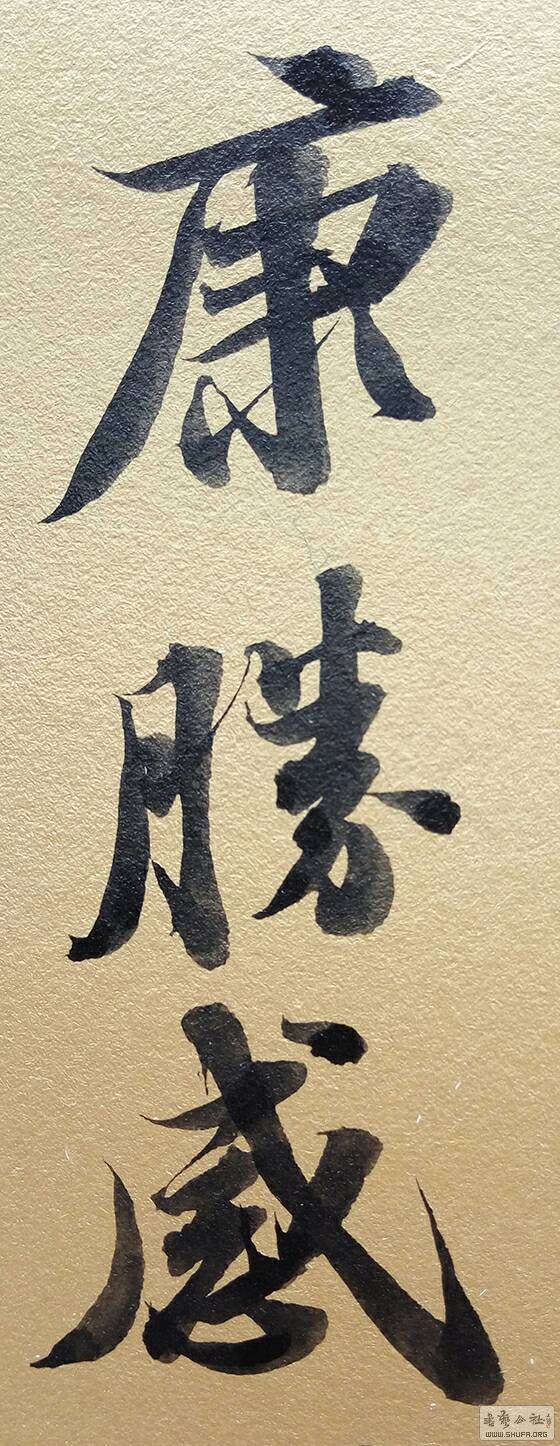 康勝感
書藝公社
WWW.SHUFA.ORG